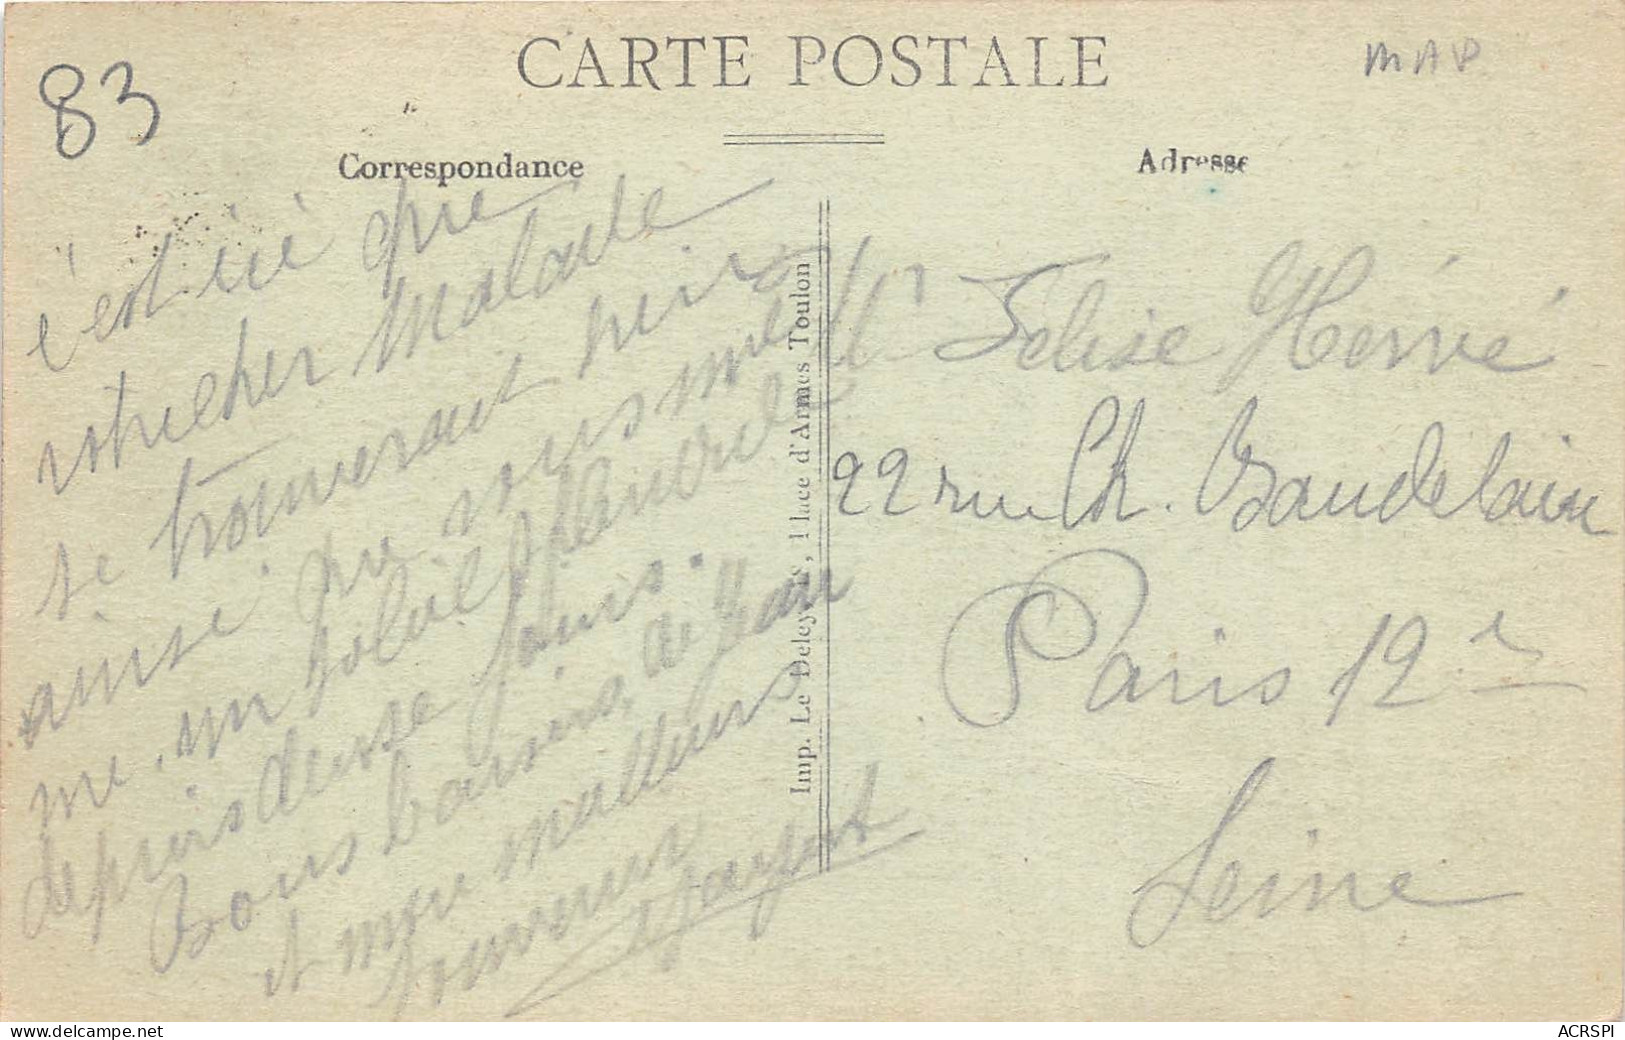 CARTE POSTALE
MAP
83
Correspondance
Adresse
c'est ici que
votre cher Malade
se trouverait bien
ainsi que vous même
me. un soleil splendide
depuis deux jours.
Bons baisers, de Jean
et mon meilleurs
souvenir
Imp. Le Deleys, 1 Place d'Armes Toulon
Mr Felise Hervé
22 rue Ch. Baudelaire
Paris 12e
Seine
www.delcampe.net
ACRSPI